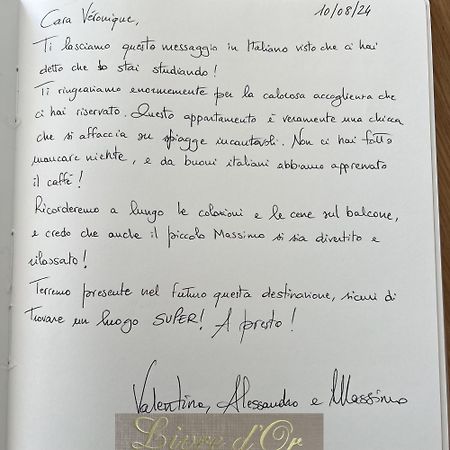 10/08/24
Cara Véronique,
Ti lasciamo questo messaggio in Italiano visto che ci hai
detto che lo stai studiando!
Ti ringraziamo enormemente per la calorosa accoglienza che
ci hai riservato. Questo appartamento è veramente una chicca
che si affaccia su spiagge incantevoli. Non ci hai fatto
mancare niente, e da buoni italiani abbiamo apprezzato
il caffè!
Ricorderemo a lungo le colazioni e le cene sul balcone,
e credo che anche il piccolo Massimo si sia divertito e
rilassato!
Terremo presente nel futuro questa destinazione, sicuri di
trovare un luogo SUPER! A presto!
Valentina, Alessandro e Massimo
Livre d'Or